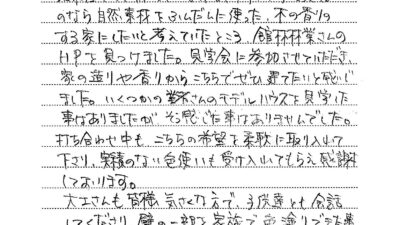 のなら自然素材をふんだんに使った、木の香りの
する家にしたいと考えていたところ、館林材業さんの
HPを見つけました。見学会に参加させていただき、
家の造りや香りからこちらでぜひ建てたいと感じ
ました。いくつかの業者さんのモデルハウスを見学した
事はありましたが、そう感じた事はありませんでした。
打ち合わせ中も、こちらの希望を柔軟に取り入れて
下さり、実績のない色使いも受け入れてもらえ感謝
しております。
大工さんも皆様、気さくな方で、子供達とも会話
してくださり、壁の一部を家族で